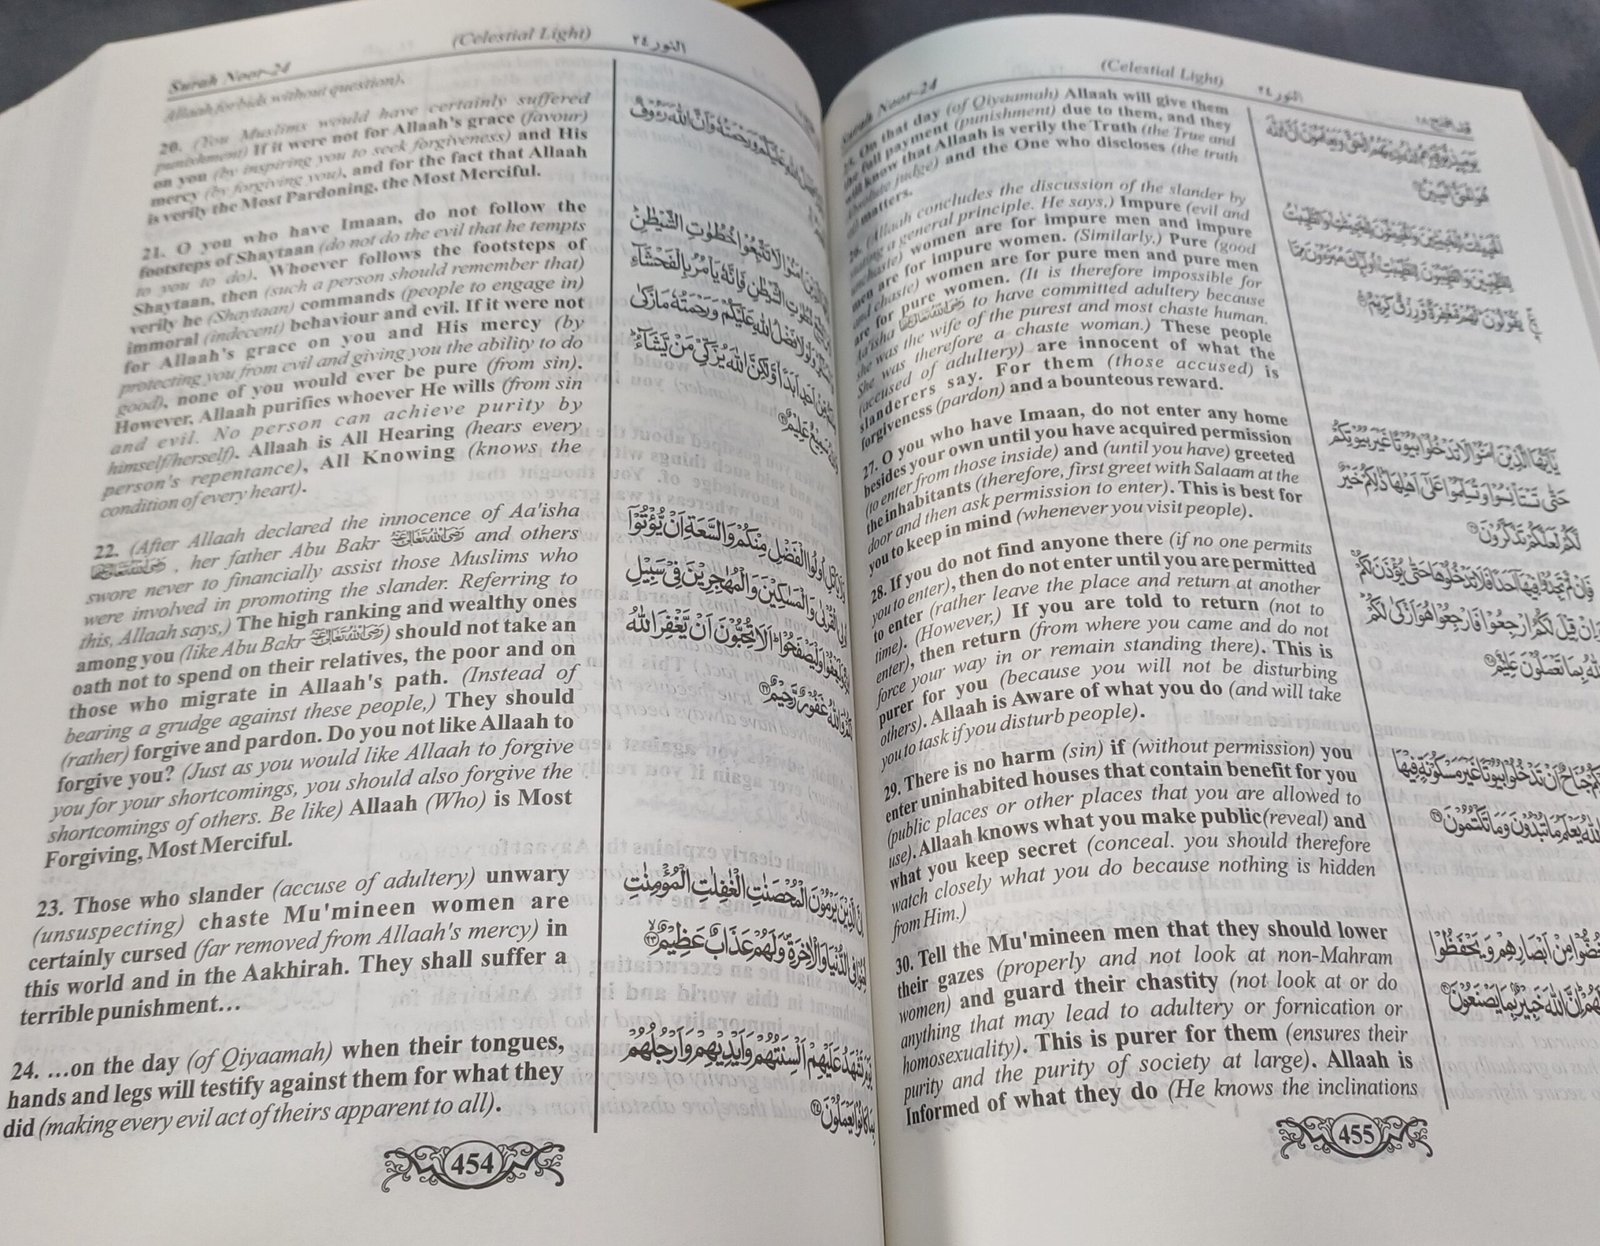 Surah Noor-24 (Celestial Light) النور ٢٤
Allaah forbids without question).
20. (You Muslims would have certainly suffered
punishment) If it were not for Allaah's grace (favour)
on you (by inspiring you to seek forgiveness) and His
mercy (by forgiving you), and for the fact that Allaah
is verily the Most Pardoning, the Most Merciful.
21. O you who have Imaan, do not follow the
footsteps of Shaytaan (do not do the evil that he tempts
to you to do). Whoever follows the footsteps of
Shaytaan, then (such a person should remember that)
verily he (Shaytaan) commands (people to engage in)
immoral (indecent) behaviour and evil. If it were not
for Allaah's grace on you and His mercy (by
protecting you from evil and giving you the ability to do
good), none of you would ever be pure (from sin).
However, Allaah purifies whoever He wills (from sin
and evil. No person can achieve purity by
himself/herself). Allaah is All Hearing (hears every
person's repentance), All Knowing (knows the
condition of every heart).
22. (After Allaah declared the innocence of Aa'isha
, her father Abu Bakr and others
swore never to financially assist those Muslims who
were involved in promoting the slander. Referring to
this, Allaah says,) The high ranking and wealthy ones
among you (like Abu Bakr ) should not take an
oath not to spend on their relatives, the poor and on
those who migrate in Allaah's path. (Instead of
bearing a grudge against these people,) They should
(rather) forgive and pardon. Do you not like Allaah to
forgive you? (Just as you would like Allaah to forgive
you for your shortcomings, you should also forgive the
shortcomings of others. Be like) Allaah (Who) is Most
Forgiving, Most Merciful.
23. Those who slander (accuse of adultery) unwary
(unsuspecting) chaste Mu'mineen women are
certainly cursed (far removed from Allaah's mercy) in
this world and in the Aakhirah. They shall suffer a
terrible punishment…
24. …on the day (of Qiyaamah) when their tongues,
hands and legs will testify against them for what they
did (making every evil act of theirs apparent to all).
عَلَيْكُمْ وَرَحْمَتُهُ وَأَنَّ اللهَ رَءُوفٌ
اٰمَنُوْا لَا تَتَّبِعُوْا خُطُوٰتِ الشَّيْطٰنِ
خُطُوٰتِ الشَّيْطٰنِ فَاِنَّهٗ يَاْمُرُ بِالْفَحْشَآءِ
وَلَوْلَا فَضْلُ اللهِ عَلَيْكُمْ وَرَحْمَتُهٗ مَا زَكٰى
اَبَدًا وَّلٰكِنَّ اللهَ يُزَكِّيْ مَنْ يَّشَآءُ
سَمِيْعٌ عَلِيْمٌ
اُولُوا الْفَضْلِ مِنْكُمْ وَالسَّعَةِ اَنْ يُّؤْتُوْٓا
الْقُرْبٰى وَالْمَسٰكِيْنَ وَالْمُهٰجِرِيْنَ فِيْ سَبِيْلِ
وَلْيَصْفَحُوْا اَلَا تُحِبُّوْنَ اَنْ يَّغْفِرَ اللهُ
وَاللهُ غَفُوْرٌ رَّحِيْمٌ ٢٢
الَّذِيْنَ يَرْمُوْنَ الْمُحْصَنٰتِ الْغٰفِلٰتِ الْمُؤْمِنٰتِ
فِي الدُّنْيَا وَالْاٰخِرَةِ وَلَهُمْ عَذَابٌ عَظِيْمٌ ٢٣
تَشْهَدُ عَلَيْهِمْ اَلْسِنَتُهُمْ وَاَيْدِيْهِمْ وَاَرْجُلُهُمْ
كَانُوْا يَعْمَلُوْنَ ٢٤
454
Surah Noor-24 (Celestial Light) النور ٢٤
25. On that day (of Qiyaamah) Allaah will give them
the full payment (punishment) due to them, and they
will know that Allaah is verily the Truth (the True and
Absolute judge) and the One who discloses (the truth
of) matters.
26. (Allaah concludes the discussion of the slander by
a general principle. He says,) Impure (evil and
unchaste) women are for impure men and impure
men are for impure women. (Similarly,) Pure (good
and chaste) women are for pure men and pure men
are for pure women. (It is therefore impossible for
Aa'isha to have committed adultery because
she was the wife of the purest and most chaste human.
She was therefore a chaste woman.) These people
(accused of adultery) are innocent of what the
slanderers say. For them (those accused) is
forgiveness (pardon) and a bounteous reward.
27. O you who have Imaan, do not enter any home
besides your own until you have acquired permission
(to enter from those inside) and (until you have) greeted
the inhabitants (therefore, first greet with Salaam at the
door and then ask permission to enter). This is best for
you to keep in mind (whenever you visit people).
28. If you do not find anyone there (if no one permits
you to enter), then do not enter until you are permitted
to enter (rather leave the place and return at another
time). (However,) If you are told to return (not to
enter), then return (from where you came and do not
force your way in or remain standing there). This is
purer for you (because you will not be disturbing
others). Allaah is Aware of what you do (and will take
you to task if you disturb people).
29. There is no harm (sin) if (without permission) you
enter uninhabited houses that contain benefit for you
(public places or other places that you are allowed to
use). Allaah knows what you make public(reveal) and
what you keep secret (conceal. you should therefore
watch closely what you do because nothing is hidden
from Him.)
30. Tell the Mu'mineen men that they should lower
their gazes (properly and not look at non-Mahram
women) and guard their chastity (not look at or do
anything that may lead to adultery or fornication or
homosexuality). This is purer for them (ensures their
purity and the purity of society at large). Allaah is
Informed of what they do (He knows the inclinations
يٰٓاَيُّهَا الَّذِيْنَ اٰمَنُوْا لَا تَدْخُلُوْا بُيُوْتًا غَيْرَ بُيُوْتِكُمْ
حَتّٰى تَسْتَاْنِسُوْا وَتُسَلِّمُوْا عَلٰٓى اَهْلِهَا ذٰلِكُمْ خَيْرٌ
لَّكُمْ لَعَلَّكُمْ تَذَكَّرُوْنَ
فَاِنْ لَّمْ تَجِدُوْا فِيْهَآ اَحَدًا فَلَا تَدْخُلُوْهَا حَتّٰى يُؤْذَنَ لَكُمْ
وَاِنْ قِيْلَ لَكُمُ ارْجِعُوْا فَارْجِعُوْا هُوَ اَزْكٰى لَكُمْ
وَاللهُ بِمَا تَعْمَلُوْنَ عَلِيْمٌ
جُنَاحٌ اَنْ تَدْخُلُوْا بُيُوْتًا غَيْرَ مَسْكُوْنَةٍ فِيْهَا
يَعْلَمُ مَا تُبْدُوْنَ وَمَا تَكْتُمُوْنَ
مِنْ اَبْصَارِهِمْ وَيَحْفَظُوْا
اِنَّ اللهَ خَبِيْرٌۢ بِمَا يَصْنَعُوْنَ
455